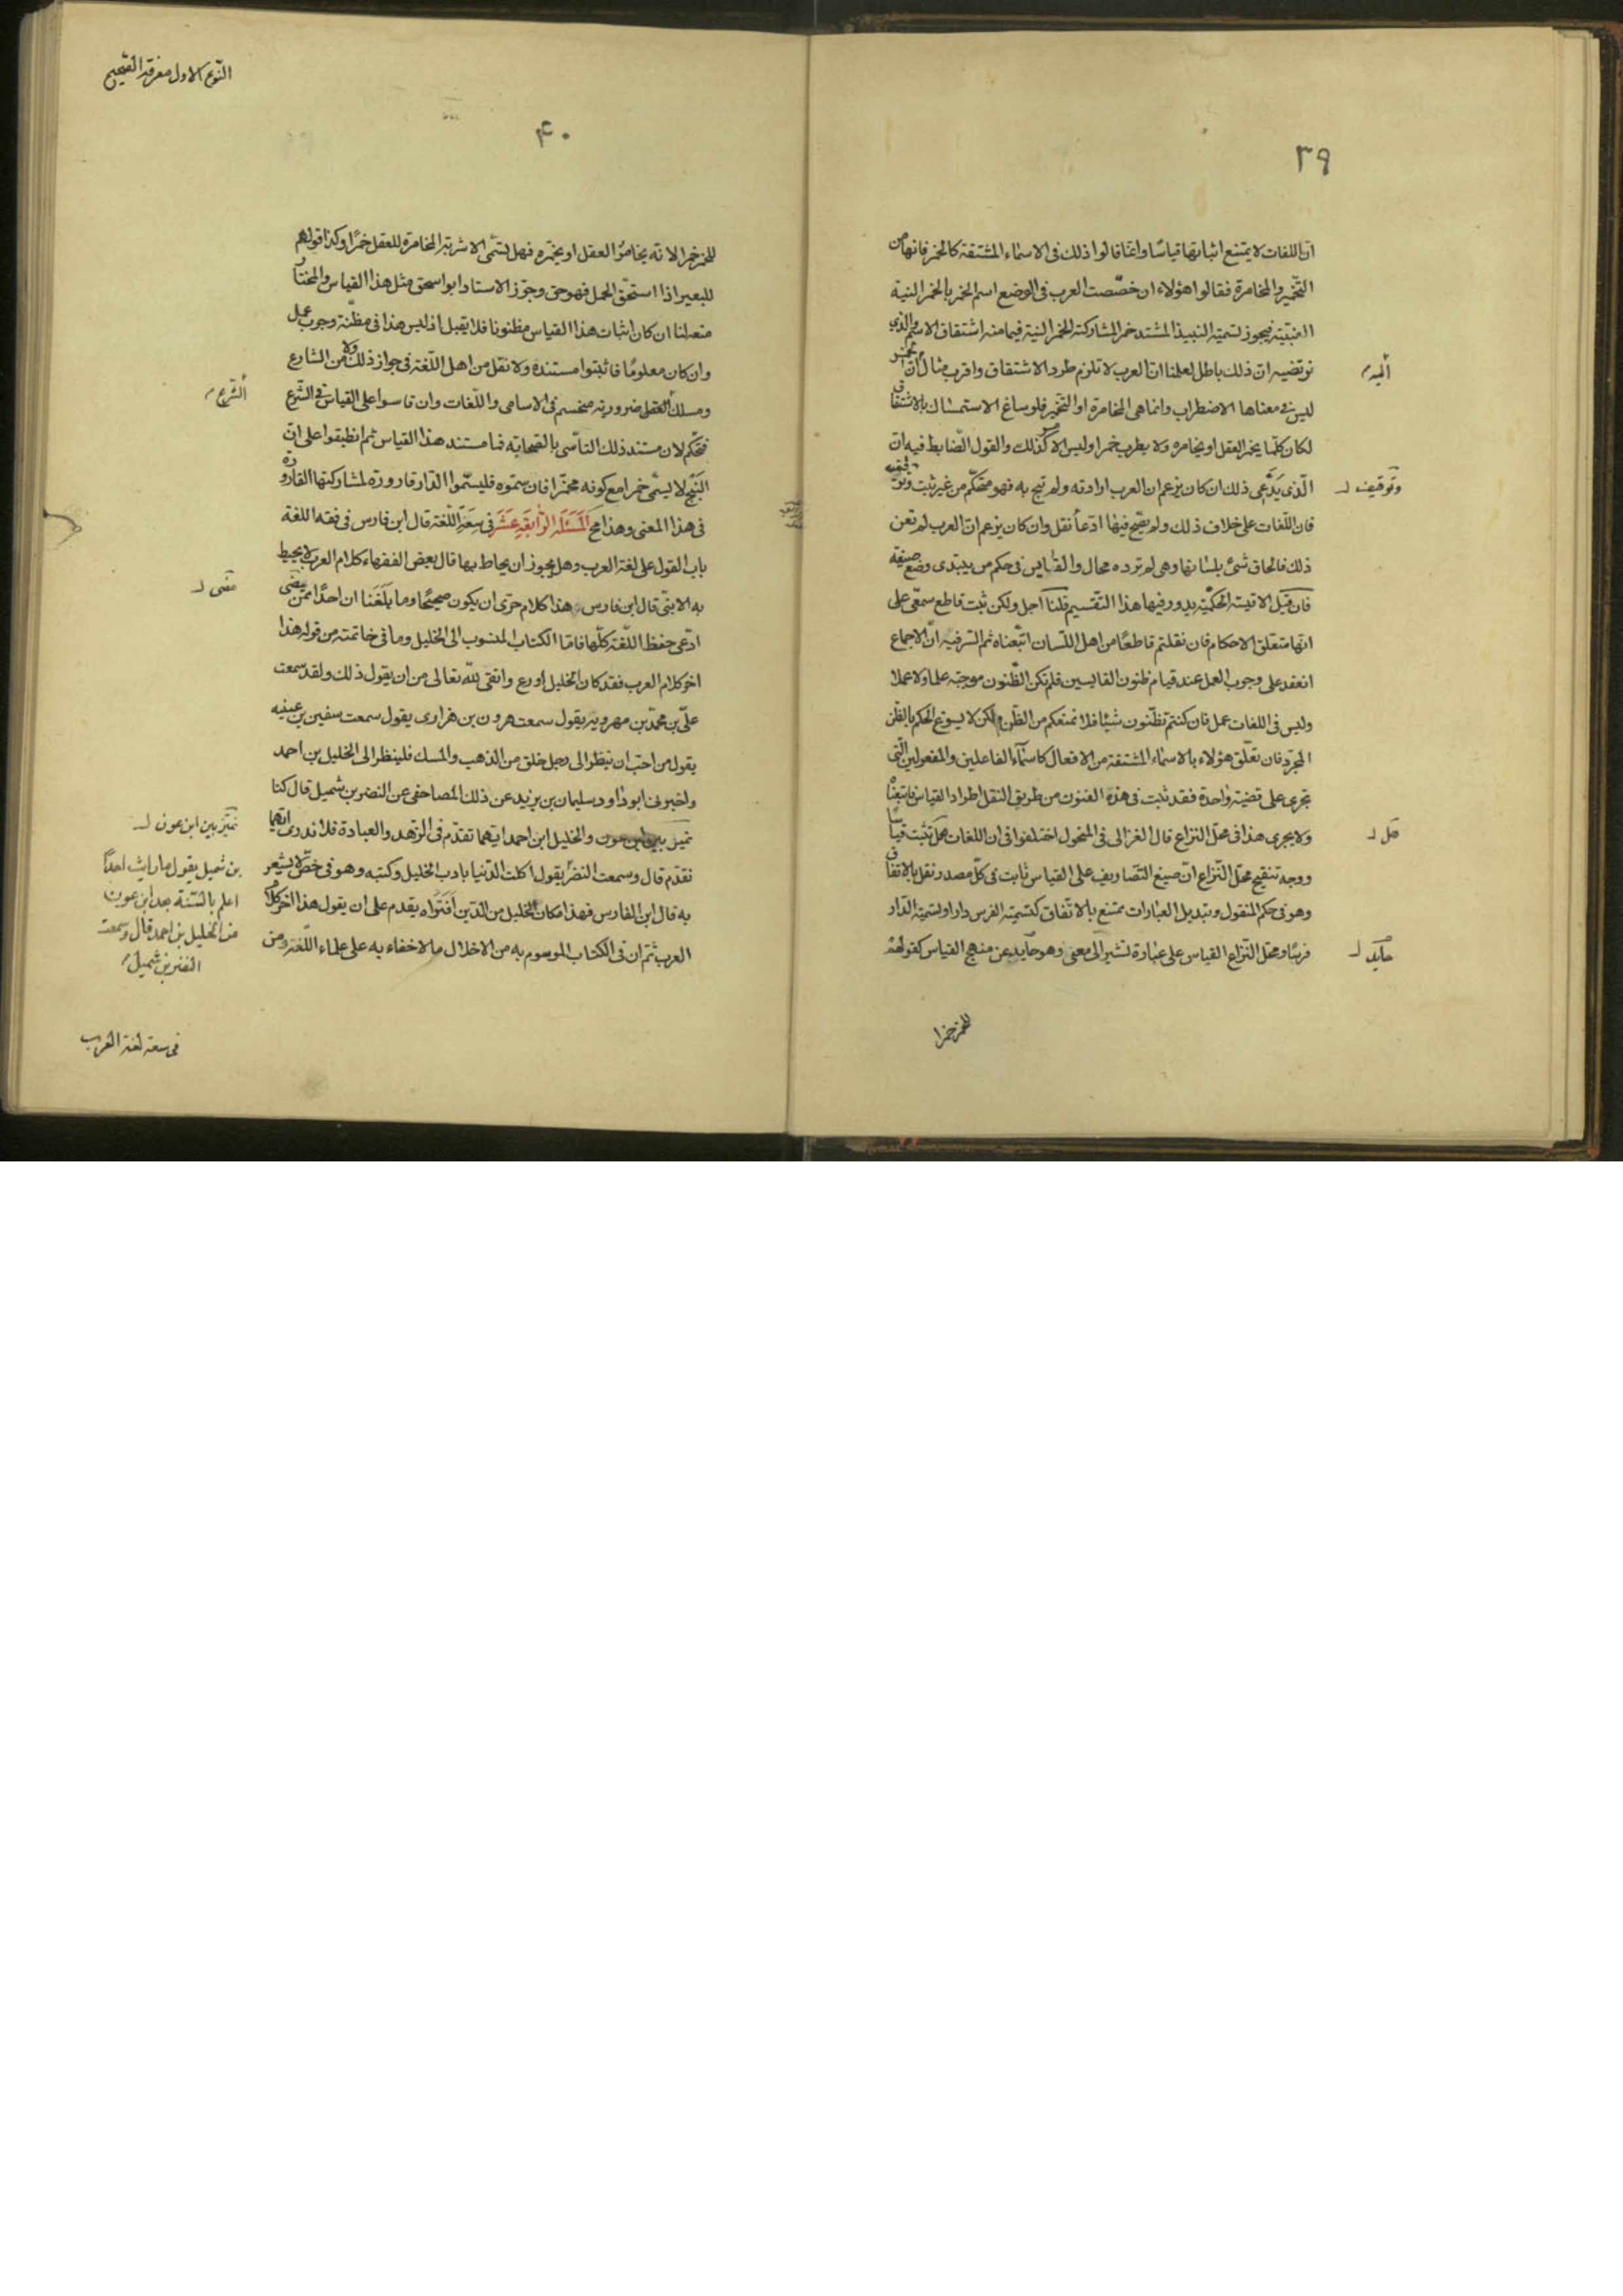 ٣٩
ان اللغات لا يمتنع اثباتها قياسا وانما قالوا ذلك فى الاسماء المشتقة كالخمر فانها من
التخمير والمخامرة فقالوا هؤلاء ان خصصت العرب فى الوضع اسم الخمر بالخمر النية
العنبية فيجوز تسمية النبيذ المشتد خمرا لمشاركته الخمر النية فيما منه اشتقاق الاسم والذى
نرتضيه ان ذلك باطل لعلمنا ان العرب لا تلتزم طرد الاشتقاق واقرب مثال ان الخمر
اليه
ليس فى معناها الاضطراب وانما هى المخامرة او التخمير فلو ساغ الاستمساك بالاشتقاق
لكان كلما يخمر العقل او يخامره ولا يطرب خمرا وليس الامر كذلك والقول الضابط فيه ان
الذى يدعى ذلك ان كان يزعم ان العرب ارادته ولم تبح به فهو متحكم من غير ثبت وتوقيف
وتوقيف
فان اللغات على خلاف ذلك ولم يصح فيها ادعاء نقل وان كان يزعم ان العرب لم تعن
ذلك فالحاق شئ بلسانها وهى لم ترده محال والقايس فى حكم من يبتدى وضع صيغة
فان قيل الاقيسة الحكمية يدور فيها هذا التقسيم قلنا اجل ولكن ثبت قاطع سمعى على
انها متعلق الاحكام فان نقلتم قاطعا من اهل اللسان اتبعناه ثم السر فيه ان الاجماع
انعقد على وجوب العمل عند قيام ظنون القايسين فلم تكن الظنون موجبة علما ولا عملا
وليس فى اللغات عمل فان كنتم تظنون شيئا فلا نمنعكم من الظن ولكن لا يسوغ الحكم بالظن
المجرد فان تعلق هؤلاء بالاسماء المشتقة من الافعال كاسماء الفاعلين والمفعولين التى
تجرى على قضية واحدة فقد ثبت فى هذه الفنون من طريق النقل اطراد القياس فاتبعناه
ولا يجرى هذا فى محل النزاع قال الغزالى فى المنخول اختلفوا فى ان اللغات هل تثبت قياسا
هل
ووجه تنقيح محل النزاع ان صيغ التصاريف على القياس ثابت فى كل مصدر نقل بالاتفاق
وهو فى حكم المنقول وتبديل العبارات ممتنع بالاتفاق كتسمية الفرس دارا وتسمية الدار
فرسا ومحل النزاع القياس على عبارة تشير الى معنى وهو حايد عن منهج القياس كقولهم
حايد
للخمر خمرا
النوع الاول معرفة الصحيح
٤٠
للخمر خمرا لانه يخامر العقل او يخمره فهل تسمى الاشربة المخامرة للعقل خمرا وكذا قولهم
للبعير اذا استحق الحمل فهو حق وجوز الاستاد ابو اسحق مثل هذا القياس والمختار
منعه لنا ان كان اثبات هذا القياس مظنونا فلا يقبل اذ ليس هذا فى مظنة وجوب عمل
وان كان معلوما فاثبتوا مستنده ولا نقل من اهل اللغة فى جواز ذلك ولا من الشارع
ومسلك العقل ضروريه منحسم فى الاسامى واللغات وان قاسوا على القياس فى الشرع
الشرع
فتحكم لان مستند ذلك التاسى بالصحابة فما مستند هذا القياس ثم انطبقوا على ان
البنج لا يسمى خمرا مع كونه مخمرا فان سموه فليسموا الدار قارورة لمشاركتها القارورة
فى هذا المعنى وهذا مح المسئلة الرابعة عشر فى سعة اللغة قال ابن فارس فى فقه اللغة
باب القول على لغة العرب وهل يجوز ان يحاط بها قال بعض الفقهاء كلام العرب لا يحيط
به الا نبى قال ابن فارس وهذا كلام حرى ان يكون صحيحا وما بلغنا ان احدا ممن مضى
مضى
ادعى حفظ اللغة كلها فاما الكتاب المنسوب الى الخليل وما فى خاتمته من قوله هذا
اخر كلام العرب فقد كان الخليل اورع واتقى لله تعالى من ان يقول ذلك ولقد سمعت
على بن محمد بن مهرويه يقول سمعت هرون بن هزارى يقول سمعت سفين بن عيينه
يقول من احب ان ينظر الى رجل خلق من الذهب والمسك فلينظر الى الخليل بن احمد
واخبرنى ابو داود سليمان بن يزيد عن ذلك المصاحفى عن النضر بن شميل قال كنا
نميل بين ابن عون والخليل ابن احمد ايهما تقدم فى الزهد والعبادة فلا ندرى ايهما
نميز بين ابن عون
نقدم قال وسمعت النضر يقول اكلت الدنيا بادب الخليل وكتبه وهو فى خص لا يشعر
به قال ابن الفارس فهذا مكان الخليل من الدين افتراه يقدم على ان يقول هذا اخر كلام
العرب ثم ان فى الكتاب الموسوم به من الاخلال ما لا خفاء به على علماء اللغة ومن
بن شميل يقول ما رايت احدا
اعلم بالسنة بعد ابن عون
من الخليل بن احمد قال وسمعت
النضر بن شميل
فى سعة لغة العرب